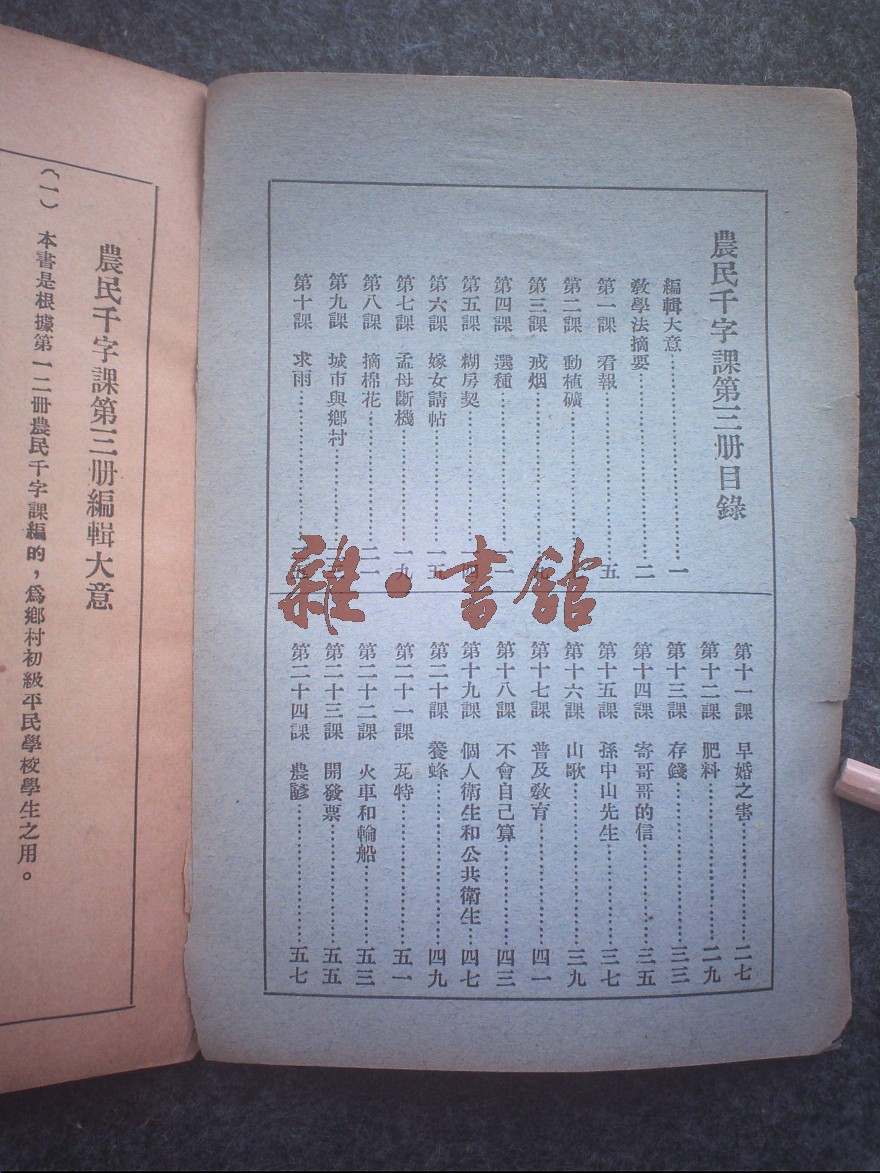 農民千字課第三册目錄
編輯大意⋯⋯⋯⋯⋯⋯一
敎學法摘要⋯⋯⋯⋯⋯⋯二
第一課 看報⋯⋯⋯⋯⋯⋯五
第二課 動植礦⋯⋯⋯⋯⋯⋯
第三課 戒烟⋯⋯⋯⋯⋯⋯
第四課 選種⋯⋯⋯⋯⋯⋯
第五課 糊房契⋯⋯⋯⋯⋯⋯
第六課 嫁女請帖⋯⋯⋯⋯⋯⋯一五
第七課 孟母斷機⋯⋯⋯⋯⋯⋯一九
第八課 摘棉花⋯⋯⋯⋯⋯⋯二一
第九課 城市與鄉村⋯⋯⋯⋯⋯⋯
第十課 求雨⋯⋯⋯⋯⋯⋯
第十一課 早婚之害⋯⋯⋯⋯⋯⋯二七
第十二課 肥料⋯⋯⋯⋯⋯⋯二九
第十三課 存錢⋯⋯⋯⋯⋯⋯三三
第十四課 寄哥哥的信⋯⋯⋯⋯⋯⋯三五
第十五課 孫中山先生⋯⋯⋯⋯⋯⋯三七
第十六課 山歌⋯⋯⋯⋯⋯⋯三九
第十七課 普及敎育⋯⋯⋯⋯⋯⋯四一
第十八課 不會自己算⋯⋯⋯⋯⋯⋯四三
第十九課 個人衛生和公共衛生⋯⋯四七
第二十課 養蜂⋯⋯⋯⋯⋯⋯四九
第二十一課 瓦特⋯⋯⋯⋯⋯⋯五一
第二十二課 火車和輪船⋯⋯⋯⋯⋯⋯五三
第二十三課 開發票⋯⋯⋯⋯⋯⋯五五
第二十四課 農諺⋯⋯⋯⋯⋯⋯五七
農民千字課第三册編輯大意
(一) 本書是根據第一二冊農民千字課編的，爲鄉村初級平民學校學生之用。
雜·書館